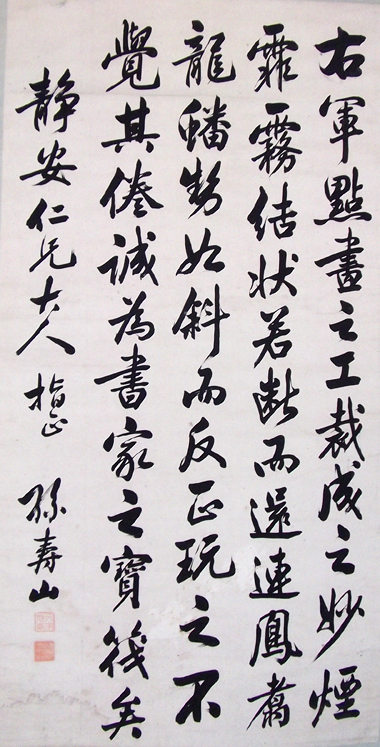 右軍點畫之工裁成之妙煙
霏霧結狀若斷而還連鳳翥
龍蟠勢如斜而反正玩之不
覺其倦誠為書家之寶筏矣
靜安仁兄大人 指正 孫壽山